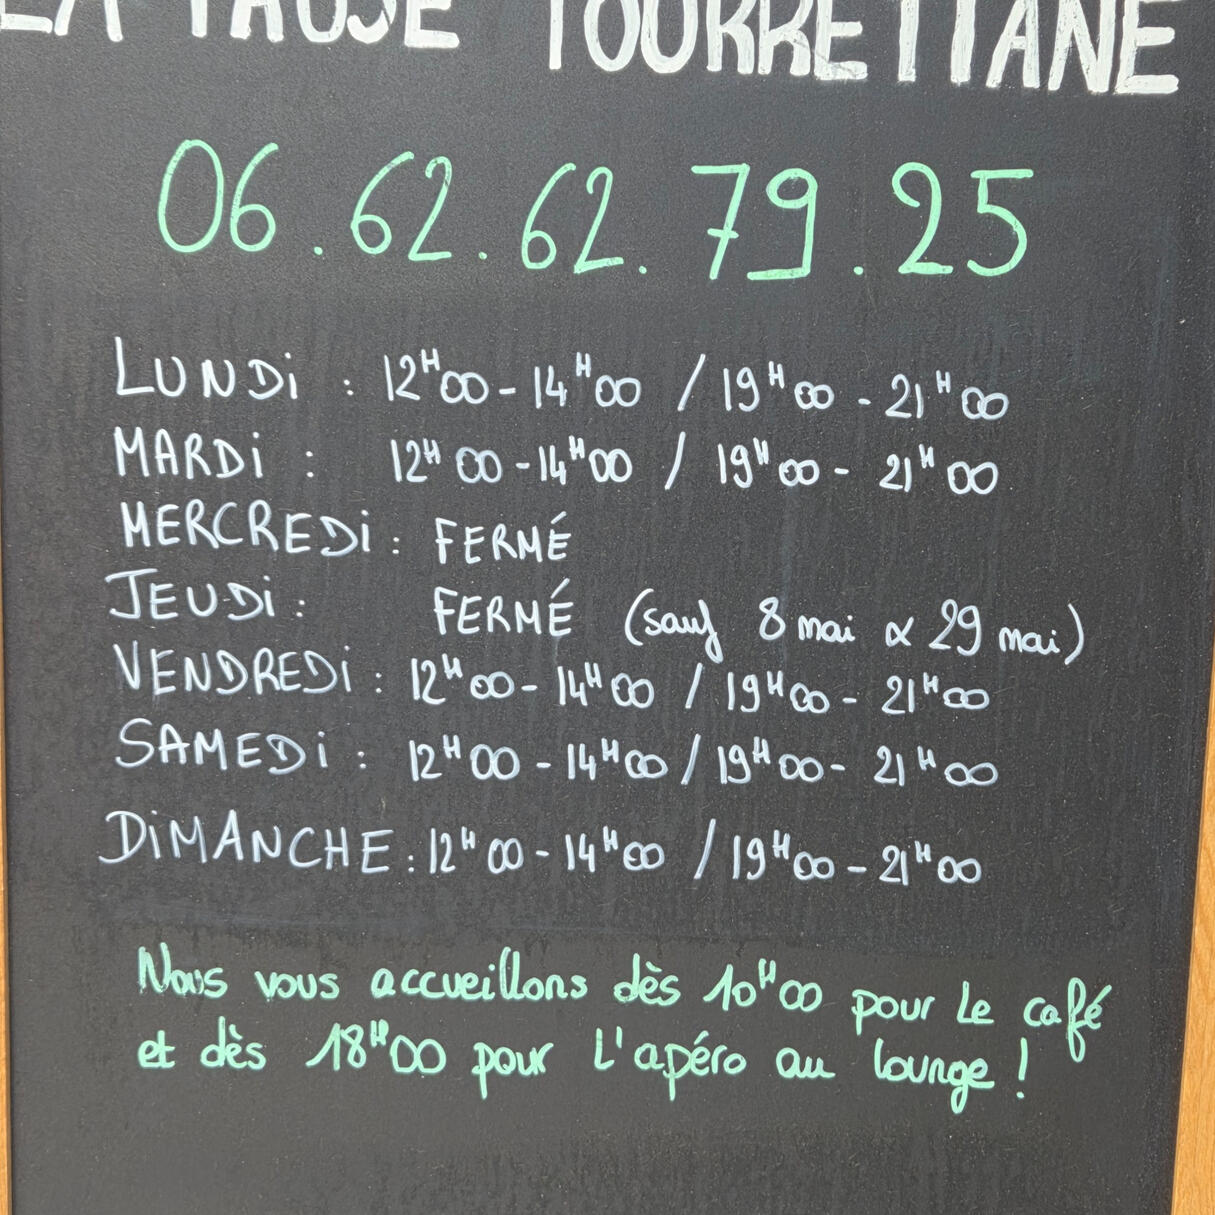 LA PAUSE TOURRETTANE
06.62.62.79.25
LUNDi : 12H00 - 14H00 / 19H00 - 21H00
MARDi : 12H00 - 14H00 / 19H00 - 21H00
MERCREDi : FERMÉ
JEUDi : FERMÉ (sauf 8 mai & 29 mai)
VENDREDi : 12H00 - 14H00 / 19H00 - 21H00
SAMEDi : 12H00 - 14H00 / 19H00 - 21H00
DiMANCHE : 12H00 - 14H00 / 19H00 - 21H00
Nous vous accueillons dès 10H00 pour Le café
et dès 18H00 pour L'apéro au lounge !